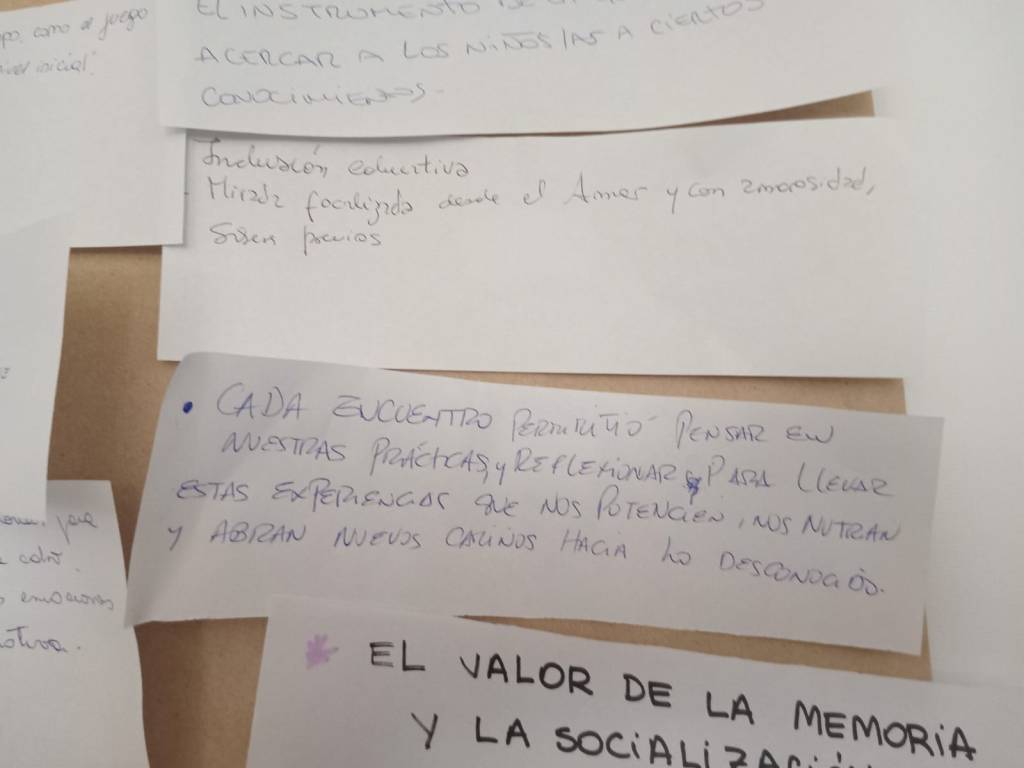 como el juego
inicial"
EL INSTRUMENTO
ACERCAR A LOS NIÑOS/AS A CIERTOS
CONOCIMIENTOS-
Inclusión eductiva
- Mirada focalizada desde el Amor y con amorosidad,
previos
• CADA ENCUENTRO PERMITIÓ PENSAR EN
NUESTRAS PRÁCTICAS, y REFLEXIONAR PARA LLEVAR
ESTAS EXPERIENCIAS QUE NOS POTENCIEN, NOS NUTRAN
y ABRAN NUEVOS CAMINOS HACIA LO DESCONOCIDO.
color.
emociones
* EL VALOR DE LA MEMORIA
Y LA SOCIALIZACIÓN